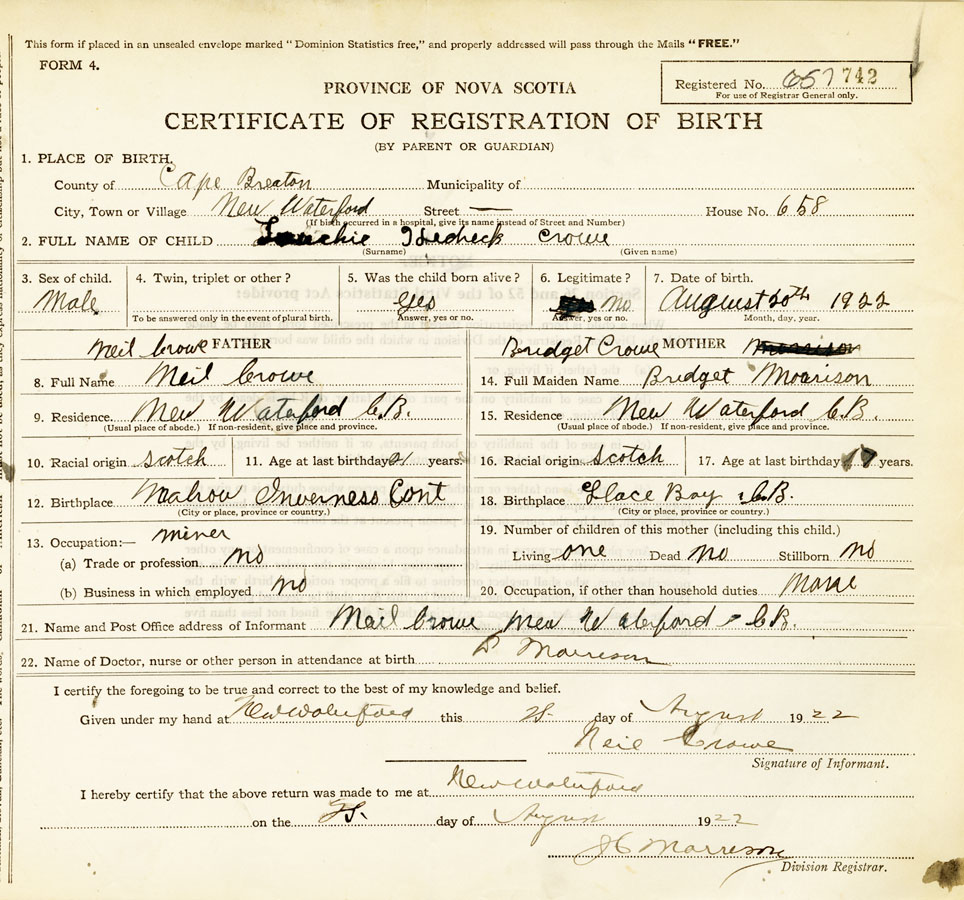 This form if placed in an unsealed envelope marked "Dominion Statistics free," and properly addressed will pass through the Mails "FREE."
FORM 4.
Registered No. 657 742
For use of Registrar General only.
PROVINCE OF NOVA SCOTIA
CERTIFICATE OF REGISTRATION OF BIRTH
(BY PARENT OR GUARDIAN)
1. PLACE OF BIRTH.
County of Cape Breaton Municipality of
City, Town or Village New Waterford Street — House No. 658
(If birth occurred in a hospital, give its name instead of Street and Number)
2. FULL NAME OF CHILD Crowe
(Surname) (Given name)
3. Sex of child. 4. Twin, triplet or other? 5. Was the child born alive? 6. Legitimate? 7. Date of birth.
Male yes no August 20th 1922
To be answered only in the event of plural birth. Answer, yes or no. Answer, yes or no. Month, day, year.
Neil Crowe FATHER Bridget Crowe MOTHER
8. Full Name Neil Crowe 14. Full Maiden Name Bridget Moarison
9. Residence. New Waterford C.B. 15. Residence New Waterford C.B.
(Usual place of abode.) If non-resident, give place and province. (Usual place of abode.) If non-resident, give place and province.
10. Racial origin Scotch 11. Age at last birthday 21 years. 16. Racial origin Scotch 17. Age at last birthday 17 years.
12. Birthplace Inverness Cont 18. Birthplace Glace Bay C.B.
(City or place, province or country.) (City or place, province or country.)
13. Occupation:— miner 19. Number of children of this mother (including this child.)
(a) Trade or profession no Living one Dead no Stillborn no
(b) Business in which employed no 20. Occupation, if other than household duties
21. Name and Post Office address of Informant Neil Crowe New Waterford C.B.
22. Name of Doctor, nurse or other person in attendance at birth Morrison
I certify the foregoing to be true and correct to the best of my knowledge and belief.
Given under my hand at New Waterford this day of August 1922
Neil Crowe
Signature of Informant.
I hereby certify that the above return was made to me at New Waterford
on the day of August 1922
Morrison
Division Registrar.